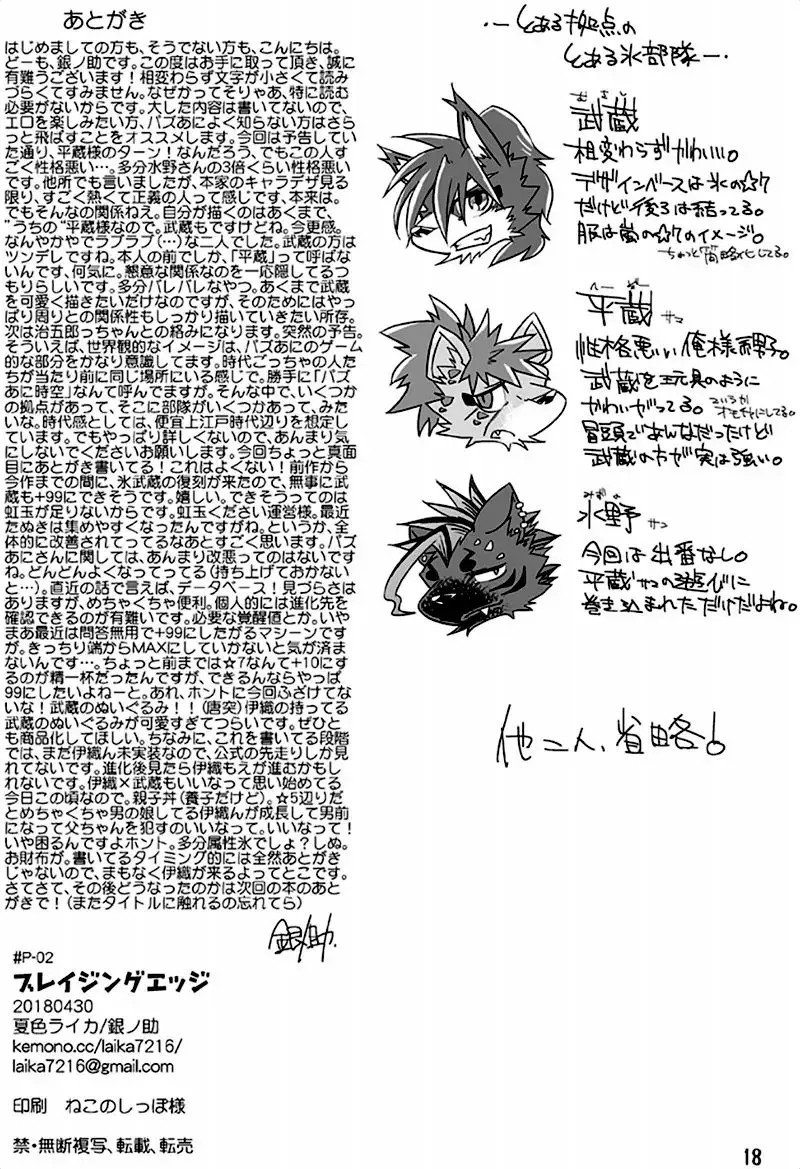 あとがき
はじめましての方も、そうでない方も、こんにちは。
どーも、銀ノ助です。この度はお手に取って頂き、誠に
有難うございます!相変わらず文字が小さくて読み
づらくてすみません。なぜかってそりゃあ、特に読む
必要がないからです。大した内容は書いてないので、
エロを楽しみたい方、パズあによく知らない方はさら
っと飛ばすことをオススメします。今回は予告してい
た通り、平蔵様のターン!なんだろう、でもこの人す
ごく性格悪い…。多分水野さんの3倍くらい性格悪い
です。他所でも言いましたが、本家のキャラデザ見る
限り、すごく熱くて正義の人って感じです、本来は。
でもそんなの関係ねえ。自分が描くのはあくまで、
"うちの"平蔵様なので。武蔵もですけどね。今更感。
なんやかやでラブラブ(…)な二人でした。武蔵の方は
ツンデレですね。本人の前でしか、「平蔵」って呼ばな
いんです、何気に。懇意な関係なのを一応隠してるつ
もりらしいです。多分バレバレなやつ。あくまで武蔵
を可愛く描きたいだけなのですが、そのためにはやっ
ぱり周りとの関係性もしっかり描いていきたい所存。
次は治五郎っちゃんとの絡みになります。突然の予告。
そういえば、世界観的なイメージは、パズあにのゲーム
的な部分をかなり意識してます。時代ごっちゃの人た
ちが当たり前に同じ場所にいる感じで。勝手に「パズ
あに時空」なんて呼んでますが。そんな中で、いくつか
の拠点があって、そこに部隊がいくつかあって、みた
いな。時代感としては、便宜上江戸時代辺りを想定し
ています。でもやっぱり詳しくないので、あんまり気
にしないでくださいお願いします。今回ちょっと真面
目にあとがき書いてる!これはよくない!前作から
今作までの間に、氷武蔵の復刻が来たので、無事に武
蔵も+99にできそうです。嬉しい。できそうってのは
虹玉が足りないからです。虹玉ください運営様。最近
たぬきは集めやすくなったんですがね。というか、全
体的に改善されてってるなあとすごく思います。パズ
あにさんに関しては、あんまり改悪ってのはないです
ね。どんどんよくなってってる(持ち上げておかない
と…)。直近の話で言えば、データベース!見づらさは
ありますが、めちゃくちゃ便利。個人的には進化先を
確認できるのが有難いです。必要な覚醒値とか。いや
まあ最近は問答無用で+99にしたがるマシーンです
が。きっちり端からMAXにしていかないと気が済ま
ないんです…。ちょっと前までは☆7なんて+10にす
るのが精一杯だったんですが、できるんならやっぱ
99にしたいよねーと。あれ、ホントに今回ふざけてな
いな!武蔵のぬいぐるみ!!(唐突)伊織の持ってる
武蔵のぬいぐるみが可愛すぎてつらいです。ぜひと
も商品化してほしい。ちなみに、これを書いてる段階
では、まだ伊織ん未実装なので、公式の先走りしか見
れてないです。進化後見たら伊織もえが進むかもし
れないです。伊織×武蔵もいいなって思い始めてる
今日この頃なので。親子丼(養子だけど)。☆5辺りだ
とめちゃくちゃ男の娘してる伊織んが成長して男前
になって父ちゃんを犯すのいいなって。いいなって!
いや困るんですよホント。多分属性氷でしょ?しぬ。
お財布が。書いてるタイミング的には全然あとがき
じゃないので、まもなく伊織が来るよってとこです。
さてさて、その後どうなったのかは次回の本のあと
がきで!(またタイトルに触れるの忘れてら)
銀ノ助.
#P-02
ブレイジングエッジ
20180430
夏色ライカ/銀ノ助
kemono.cc/laika7216/
laika7216@gmail.com
印刷 ねこのしっぽ様
禁・無断複写、転載、転売
・―とある拠点の
とある氷部隊―・
むさし
武蔵
相変わらずかわいい。
デザインベースは氷の☆7
だけど後ろは結ってる。
服は嵐の☆7のイメージ。
ちょっと簡略化してる。
へーぞー
平蔵 サマ
性格悪い俺様系男子。
武蔵を玩具のように
かわいがってる。というかオモチャにしてる
冒頭であんなだったけど
武蔵の方が実は強い。
みずの
水野 サン
今回は出番なし。
平蔵サマの遊びに
巻き込まれただけだよね。
他二人、省略!
18